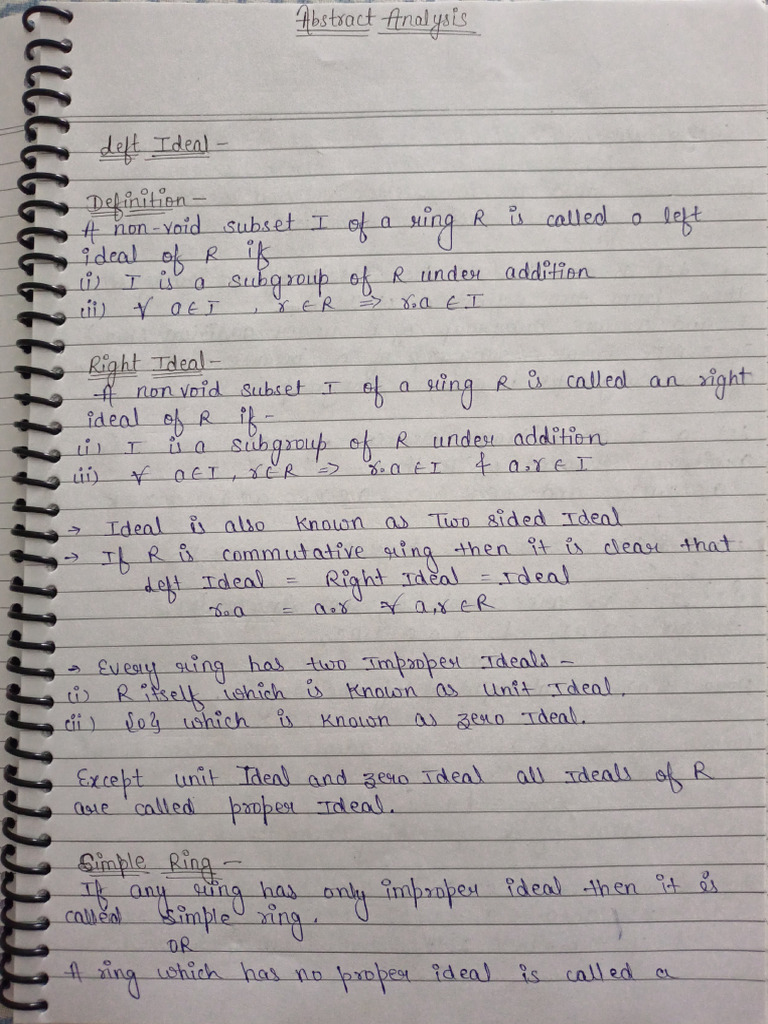 Abstract Analysis
Left Ideal -
Definition -
A non-void subset I of a ring R is called a left
ideal of R if
(i) I is a subgroup of R under addition
(ii) ∀ a∈I , r∈R ⇒ r.a ∈ I
Right Ideal -
A nonvoid subset I of a ring R is called an right
ideal of R if -
(i) I is a subgroup of R under addition
(ii) ∀ a∈I, r∈R ⇒ r.a∈I & a.r∈I
→ Ideal is also known as Two sided Ideal
→ If R is commutative ring then it is clear that
Left Ideal = Right Ideal = Ideal
r.a = a.r ∀ a,r∈R
→ Every ring has two Improper Ideals -
(i) R itself which is known as unit Ideal.
(ii) {0} which is known as zero Ideal.
Except unit Ideal and zero Ideal all Ideals of R
are called proper Ideal.
Simple Ring -
If any ring has only improper ideal then it is
called simple ring.
OR
A ring which has no proper ideal is called a